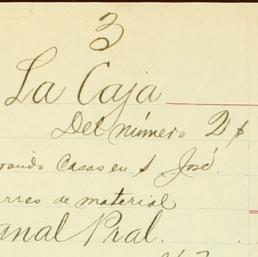 3
La Caja
Del número 2 $
rando Casas en S José.
rres de material
anal Pral.